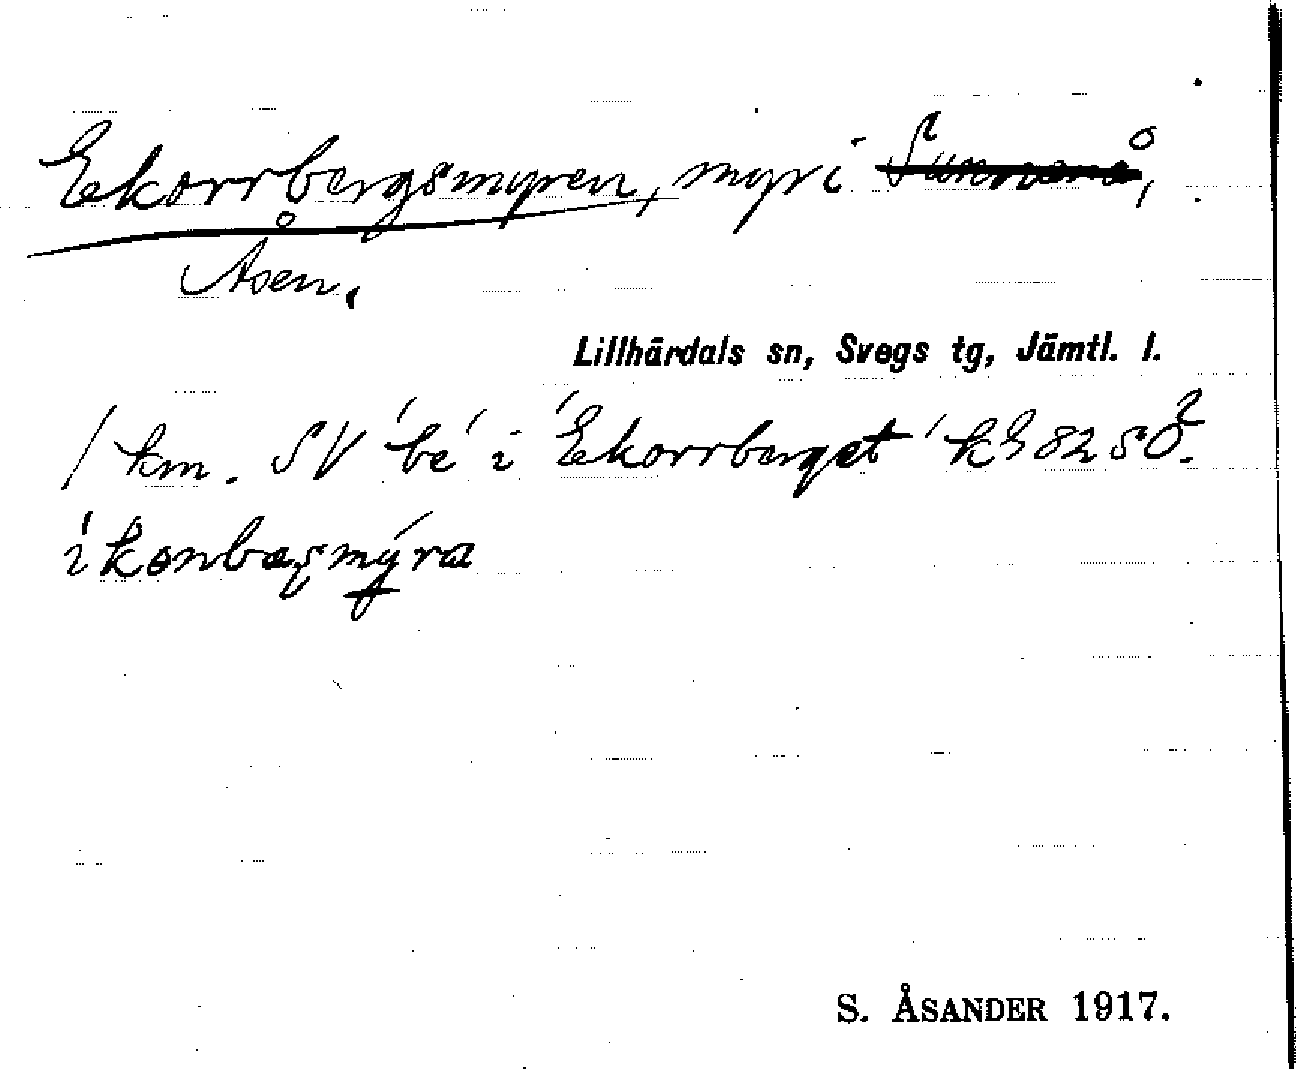 Ekorrbergsmyren, myr i Sunnanå,
Åsen.
Lillhärdals sn, Svegs tg, Jämtl. l.
1 km. SV 'be' i 'Ekorrberget' k 9 82 SÖ.
ikonbæsmýra
S. ÅSANDER 1917.